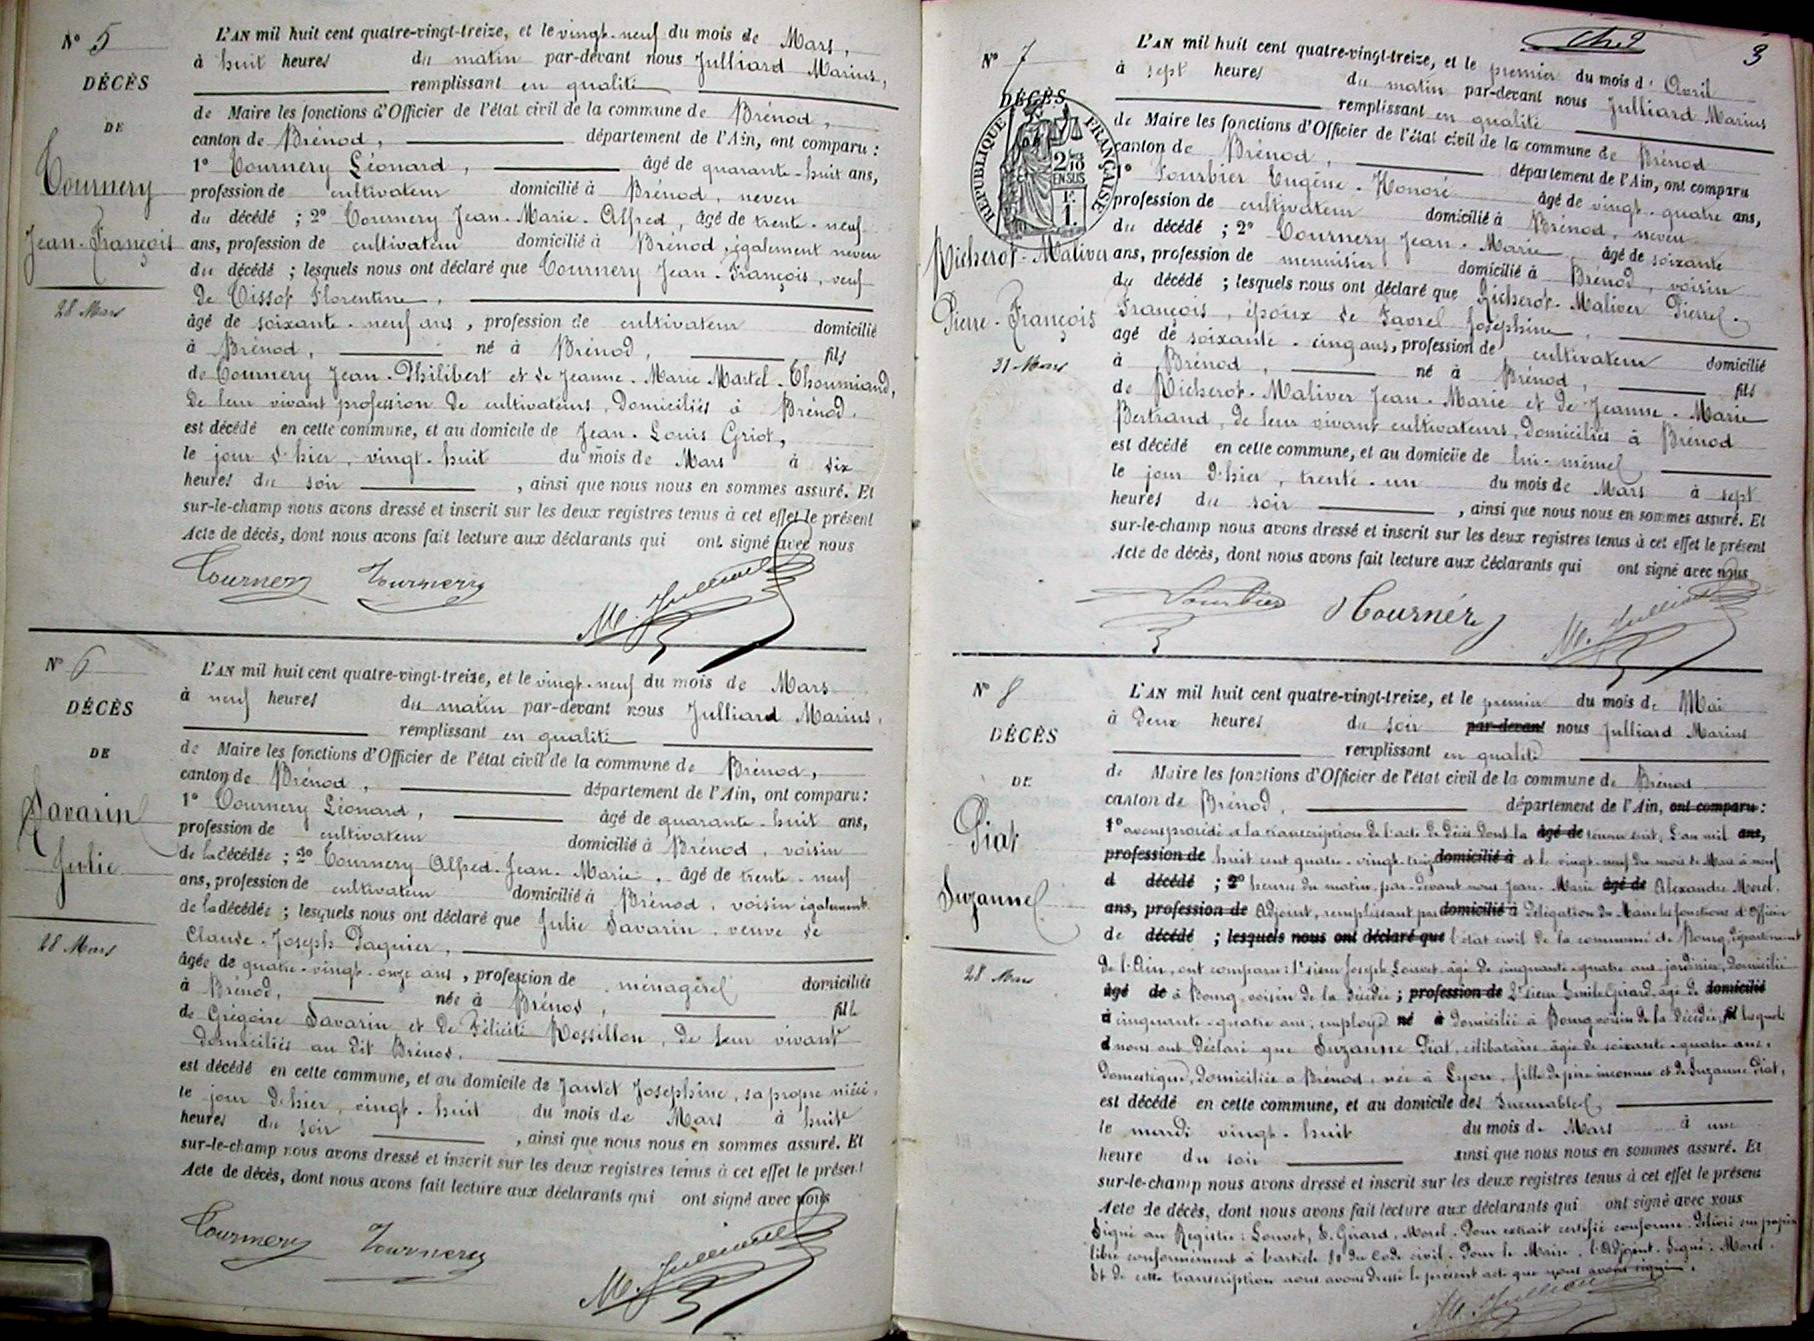 N° 5
DÉCÈS
DE
Tournery
Jean-François
28 Mars
L'AN mil huit cent quatre-vingt-treize, et le vingt-neuf du mois de Mars,
à huit heures du matin par-devant nous Julliard Marius,
remplissant en qualité
de Maire les fonctions d'Officier de l'état civil de la commune de Brénod,
canton de Brénod, département de l'Ain, ont comparu :
1° Tournery Léonard, âgé de quarante-huit ans,
profession de cultivateur domicilié à Brénod, neveu
du décédé ; 2° Tournery Jean-Marie-Alfred, âgé de trente-neuf
ans, profession de cultivateur domicilié à Brénod, également neveu
du décédé ; lesquels nous ont déclaré que Tournery Jean-François, veuf
de Tissot Florentine,
âgé de soixante-neuf ans, profession de cultivateur domicilié
à Brénod, né à Brénod, fils
de Tournery Jean-Philibert et de Jeanne-Marie Martel-Thoumiand,
de leur vivant profession de cultivateurs, domiciliés à Brénod.
est décédé en cette commune, et au domicile de Jean-Louis Griot,
le jour d'hier, vingt-huit du mois de Mars à six
heures du soir , ainsi que nous nous en sommes assuré. Et
sur-le-champ nous avons dressé et inscrit sur les deux registres tenus à cet effet le présent
Acte de décès, dont nous avons fait lecture aux déclarants qui ont signé avec nous
Tournery Tournery
M. Julliard
N° 6
DÉCÈS
DE
Savarin
Julie
28 Mars
L'AN mil huit cent quatre-vingt-treize, et le vingt-neuf du mois de Mars
à neuf heures du matin par-devant nous Julliard Marius,
remplissant en qualité
de Maire les fonctions d'Officier de l'état civil de la commune de Brénod,
canton de Brénod, département de l'Ain, ont comparu :
1° Tournery Léonard, âgé de quarante-huit ans,
profession de cultivateur domicilié à Brénod, voisin
de la décédée ; 2° Tournery Alfred-Jean-Marie, âgé de trente-neuf
ans, profession de cultivateur domicilié à Brénod, voisin également
de la décédée ; lesquels nous ont déclaré que Julie Savarin, veuve de
Claude-Joseph Paquier,
âgée de quatre-vingt-onze ans, profession de ménagère domiciliée
à Brénod, née à Brénod, fille
de Grégoire Savarin et de Félicité Rossillon, de leur vivant
domiciliés au dit Brénod,
est décédé en cette commune, et au domicile de Jantet Josephine, sa propre nièce,
le jour d'hier, vingt-huit du mois de Mars à huit
heures du soir , ainsi que nous nous en sommes assuré. Et
sur-le-champ nous avons dressé et inscrit sur les deux registres tenus à cet effet le présent
Acte de décès, dont nous avons fait lecture aux déclarants qui ont signé avec nous
Tournery Tournery
M. Julliard
3
N° 7
DÉCÈS
RÉPUBLIQUE FRANÇAISE
2/10 EN SUS
1 F.
Richerot-Maliver
Pierre-François
31 Mars
L'AN mil huit cent quatre-vingt-treize, et le premier du mois d'Avril
à sept heures du matin par-devant nous Julliard Marius
remplissant en qualité
de Maire les fonctions d'Officier de l'état civil de la commune de Brénod
canton de Brénod, département de l'Ain, ont comparu
1° Fourbier Eugène-Honoré âgé de vingt-quatre ans,
profession de cultivateur domicilié à Brénod, neveu
du décédé ; 2° Tournery Jean-Marie âgé de soixante
ans, profession de menuisier domicilié à Brénod, voisin
du décédé ; lesquels nous ont déclaré que Richerot-Maliver Pierre-
François, époux de Favrel Joséphine,
agé de soixante-cinq ans, profession de cultivateur domicilié
à Brénod, né à Brénod, fils
de Richerot-Maliver Jean-Marie et de Jeanne-Marie
Bertrand, de leur vivant cultivateurs, domiciliés à Brénod
est décédé en cette commune, et au domicile de lui-même,
le jour d'hier, trente-un du mois de Mars à sept
heures du soir , ainsi que nous nous en sommes assuré. Et
sur-le-champ nous avons dressé et inscrit sur les deux registres tenus à cet effet le présent
Acte de décès, dont nous avons fait lecture aux déclarants qui ont signé avec nous
Fourbier Tournéry
M. Julliard
N° 8
DÉCÈS
DE
Piat
Suzanne
28 Mars
L'AN mil huit cent quatre-vingt-treize, et le premier du mois de Mai
à deux heures du soir par-devant nous Julliard Marius
remplissant en qualité
de Maire les fonctions d'Officier de l'état civil de la commune de Brénod
canton de Brénod, département de l'Ain, ont comparu :
1° avons procédé à la transcription de l'acte de décès dont la âgé de teneur suit, L'an mil ans,
profession de huit cent quatre-vingt-treize domicilié à et le vingt-neuf du mois de Mars à neuf
d décédé ; 2° heures du matin, par-devant nous Jean-Marie âgé de Alexandre Morel,
ans, profession de Adjoint, remplissant par domicilié à délégation du Maire les fonctions d'officier
de décédé ; lesquels nous ont déclaré que l'état civil de la commune de Bourg, département
de l'Ain, ont comparu : 1° sieur Joseph Louvet, âgé de cinquante-quatre ans, jardinier, domicilié
âgé de à Bourg, voisin de la décédée ; profession de 2° sieur Emile Girard, âgé de domicilié
à cinquante-quatre ans, employé né à domicilié à Bourg, voisin de la décédée, fil lesquels
d nous ont déclaré que Suzanne Piat, célibataire âgée de soixante-quatre ans,
domestique, domiciliée à Brénod, née à Lyon, fille de père inconnu et de Suzanne Piat,
est décédé en cette commune, et au domicile des Incurables,
le mardi vingt-huit du mois de Mars à une
heure du soir ainsi que nous nous en sommes assuré. Et
sur-le-champ nous avons dressé et inscrit sur les deux registres tenus à cet effet le présent
Acte de décès, dont nous avons fait lecture aux déclarants qui ont signé avec nous
Signé au Registre : Louvet, E. Girard, Morel. Pour extrait certifié conforme, délivré sur papier
libre conformément à l'article 80 du Code civil. Pour le Maire, l'Adjoint. Signé : Morel.
Et de cette transcription nous avons dressé le présent acte que nous avons signé.
M. Julliard